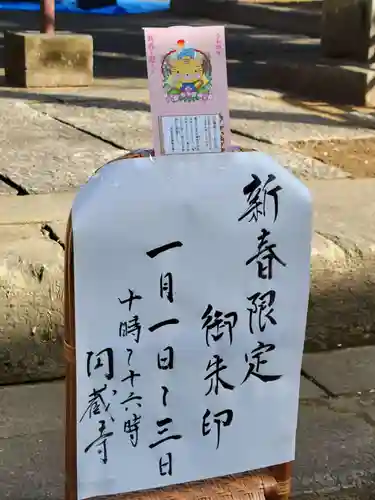 新春限定
御朱印
一月一日～三日
十時～十六時
円蔵寺